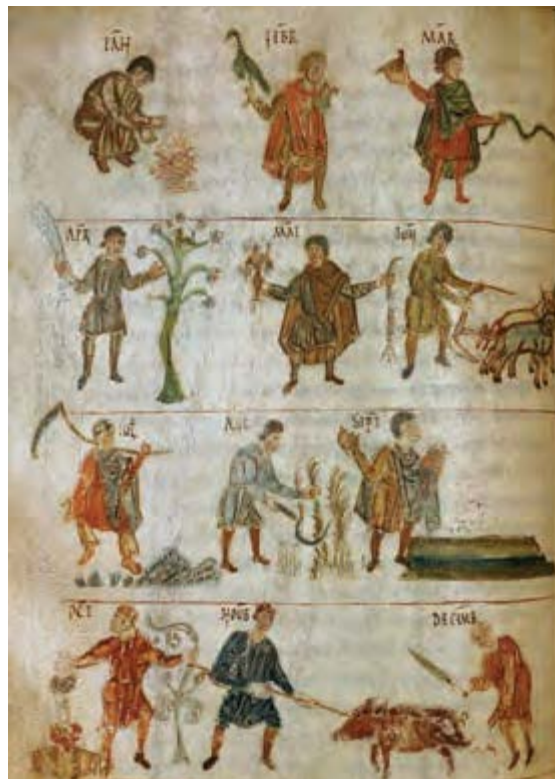 IAN FEBR MAR
APR MAI IUN
AUG SEPT
OCT NOUB DECEMB